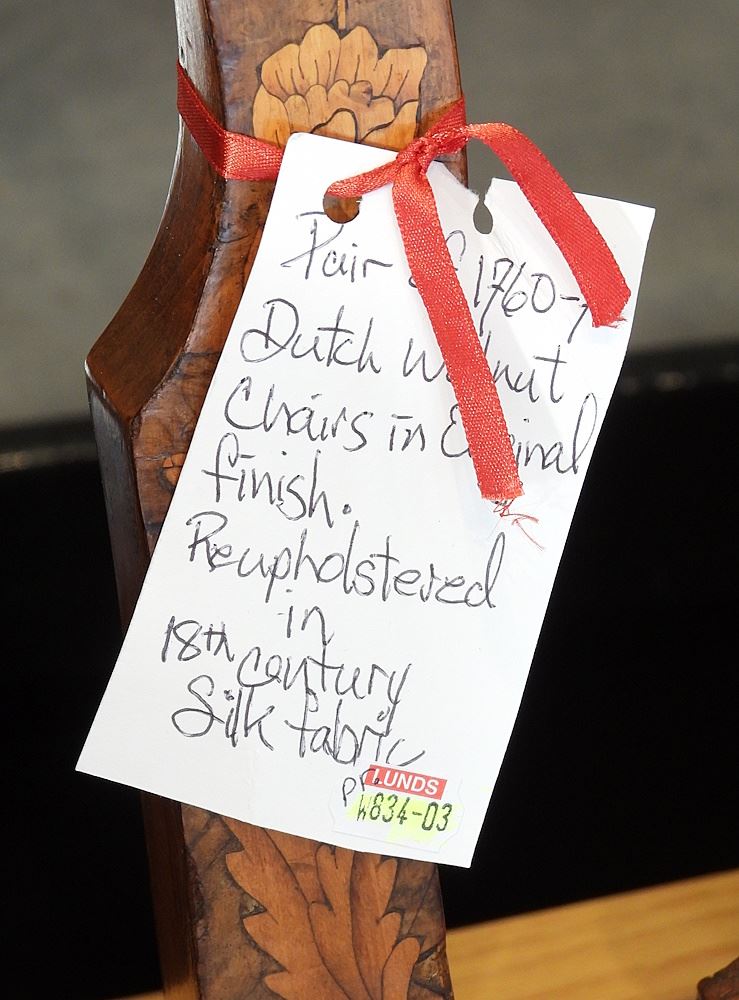 Pair 1760-
Dutch Walnut
Chairs in
finish.
Reupholstered
in
18th century
Silk fabric
pr.
LUNDS
W834-03